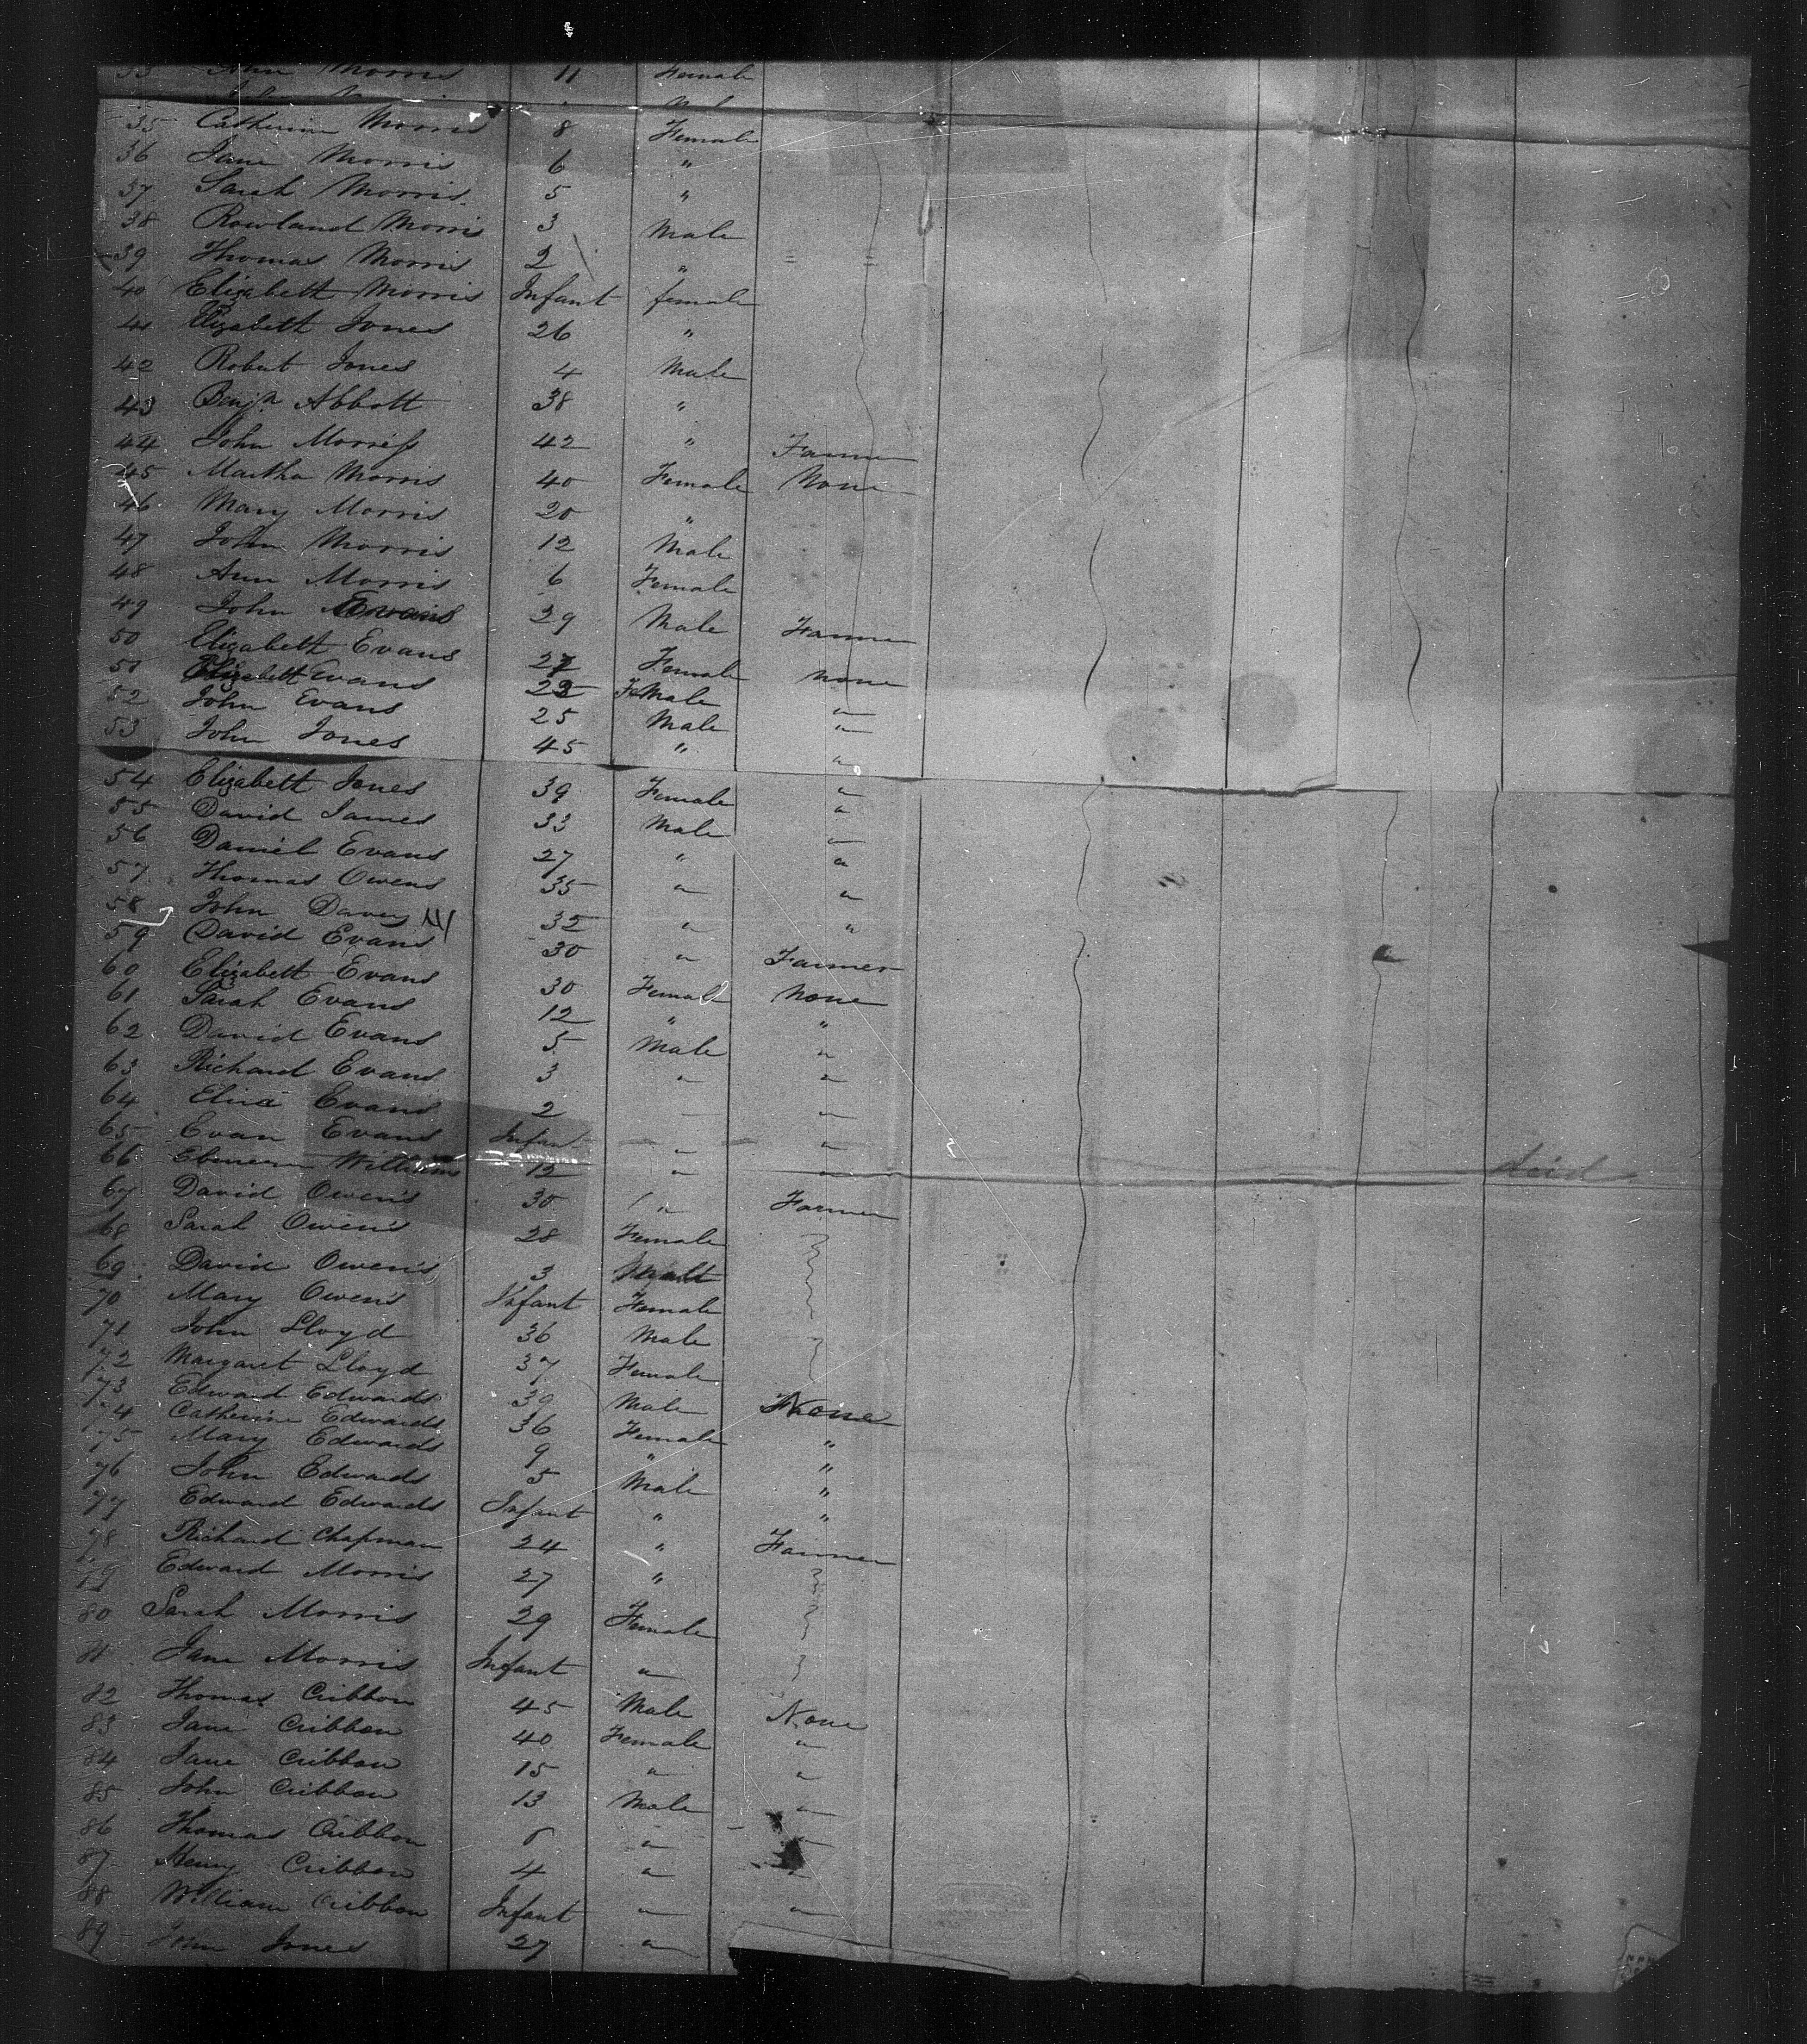 33 Ann Morris 11 Female
35 Catherine Morris 8 Female
36 Jane Morris 6 "
37 Sarah Morris 5 "
38 Rowland Morris 3 Male
39 Thomas Morris 2 "
40 Elizabeth Morris Infant female
41 Elizabeth Jones 26 "
42 Robert Jones 4 Male
43 Benjn Abbott 38 "
44 John Morris 42 " Farmer
45 Martha Morris 40 Female None
46 Mary Morris 20 "
47 John Morris 12 Male
48 Ann Morris 6 Female
49 John Evans 29 Male Farmer
50 Elizabeth Evans 27 Female None
51 Elizabeth Evans 23 FeMale "
52 John Evans 25 Male "
53 John Jones 45 " "
54 Elizabeth Jones 39 Female "
55 David James 33 Male "
56 Daniel Evans 27 " "
57 Thomas Owens 35 " "
58 John Davis 32 " "
59 David Evans 30 " Farmer
60 Elizabeth Evans 30 Female None
61 Sarah Evans 12 " "
62 David Evans 5 Male "
63 Richard Evans 3 " "
64 Eliza Evans 2 — "
65 Evan Evans Infant " "
66 Ebenezer Williams 12 " " died
67 David Owen's 30 " Farmer
68 Sarah Owen's 28 Female
69 David Owen's 3 Male
70 Mary Owen's Infant Female
71 John Lloyd 36 Male
72 Margaret Lloyd 37 Female
73 Edward Edwards 39 Male None
74 Catherine Edwards 36 Female "
75 Mary Edwards 9 " "
76 John Edwards 5 Male "
77 Edward Edwards Infant " "
78 Richard Chapman 24 " Farmer
79 Edward Morris 27 "
80 Sarah Morris 29 Female
81 Jane Morris Infant "
82 Thomas Cribbon 45 Male None
83 Jane Cribbon 40 Female "
84 Jane Cribbon 15 " "
85 John Cribbon 13 Male "
86 Thomas Cribbon " "
87 Henry Cribbon 4 " "
88 William Cribbon Infant " "
89 John Jones 27 "